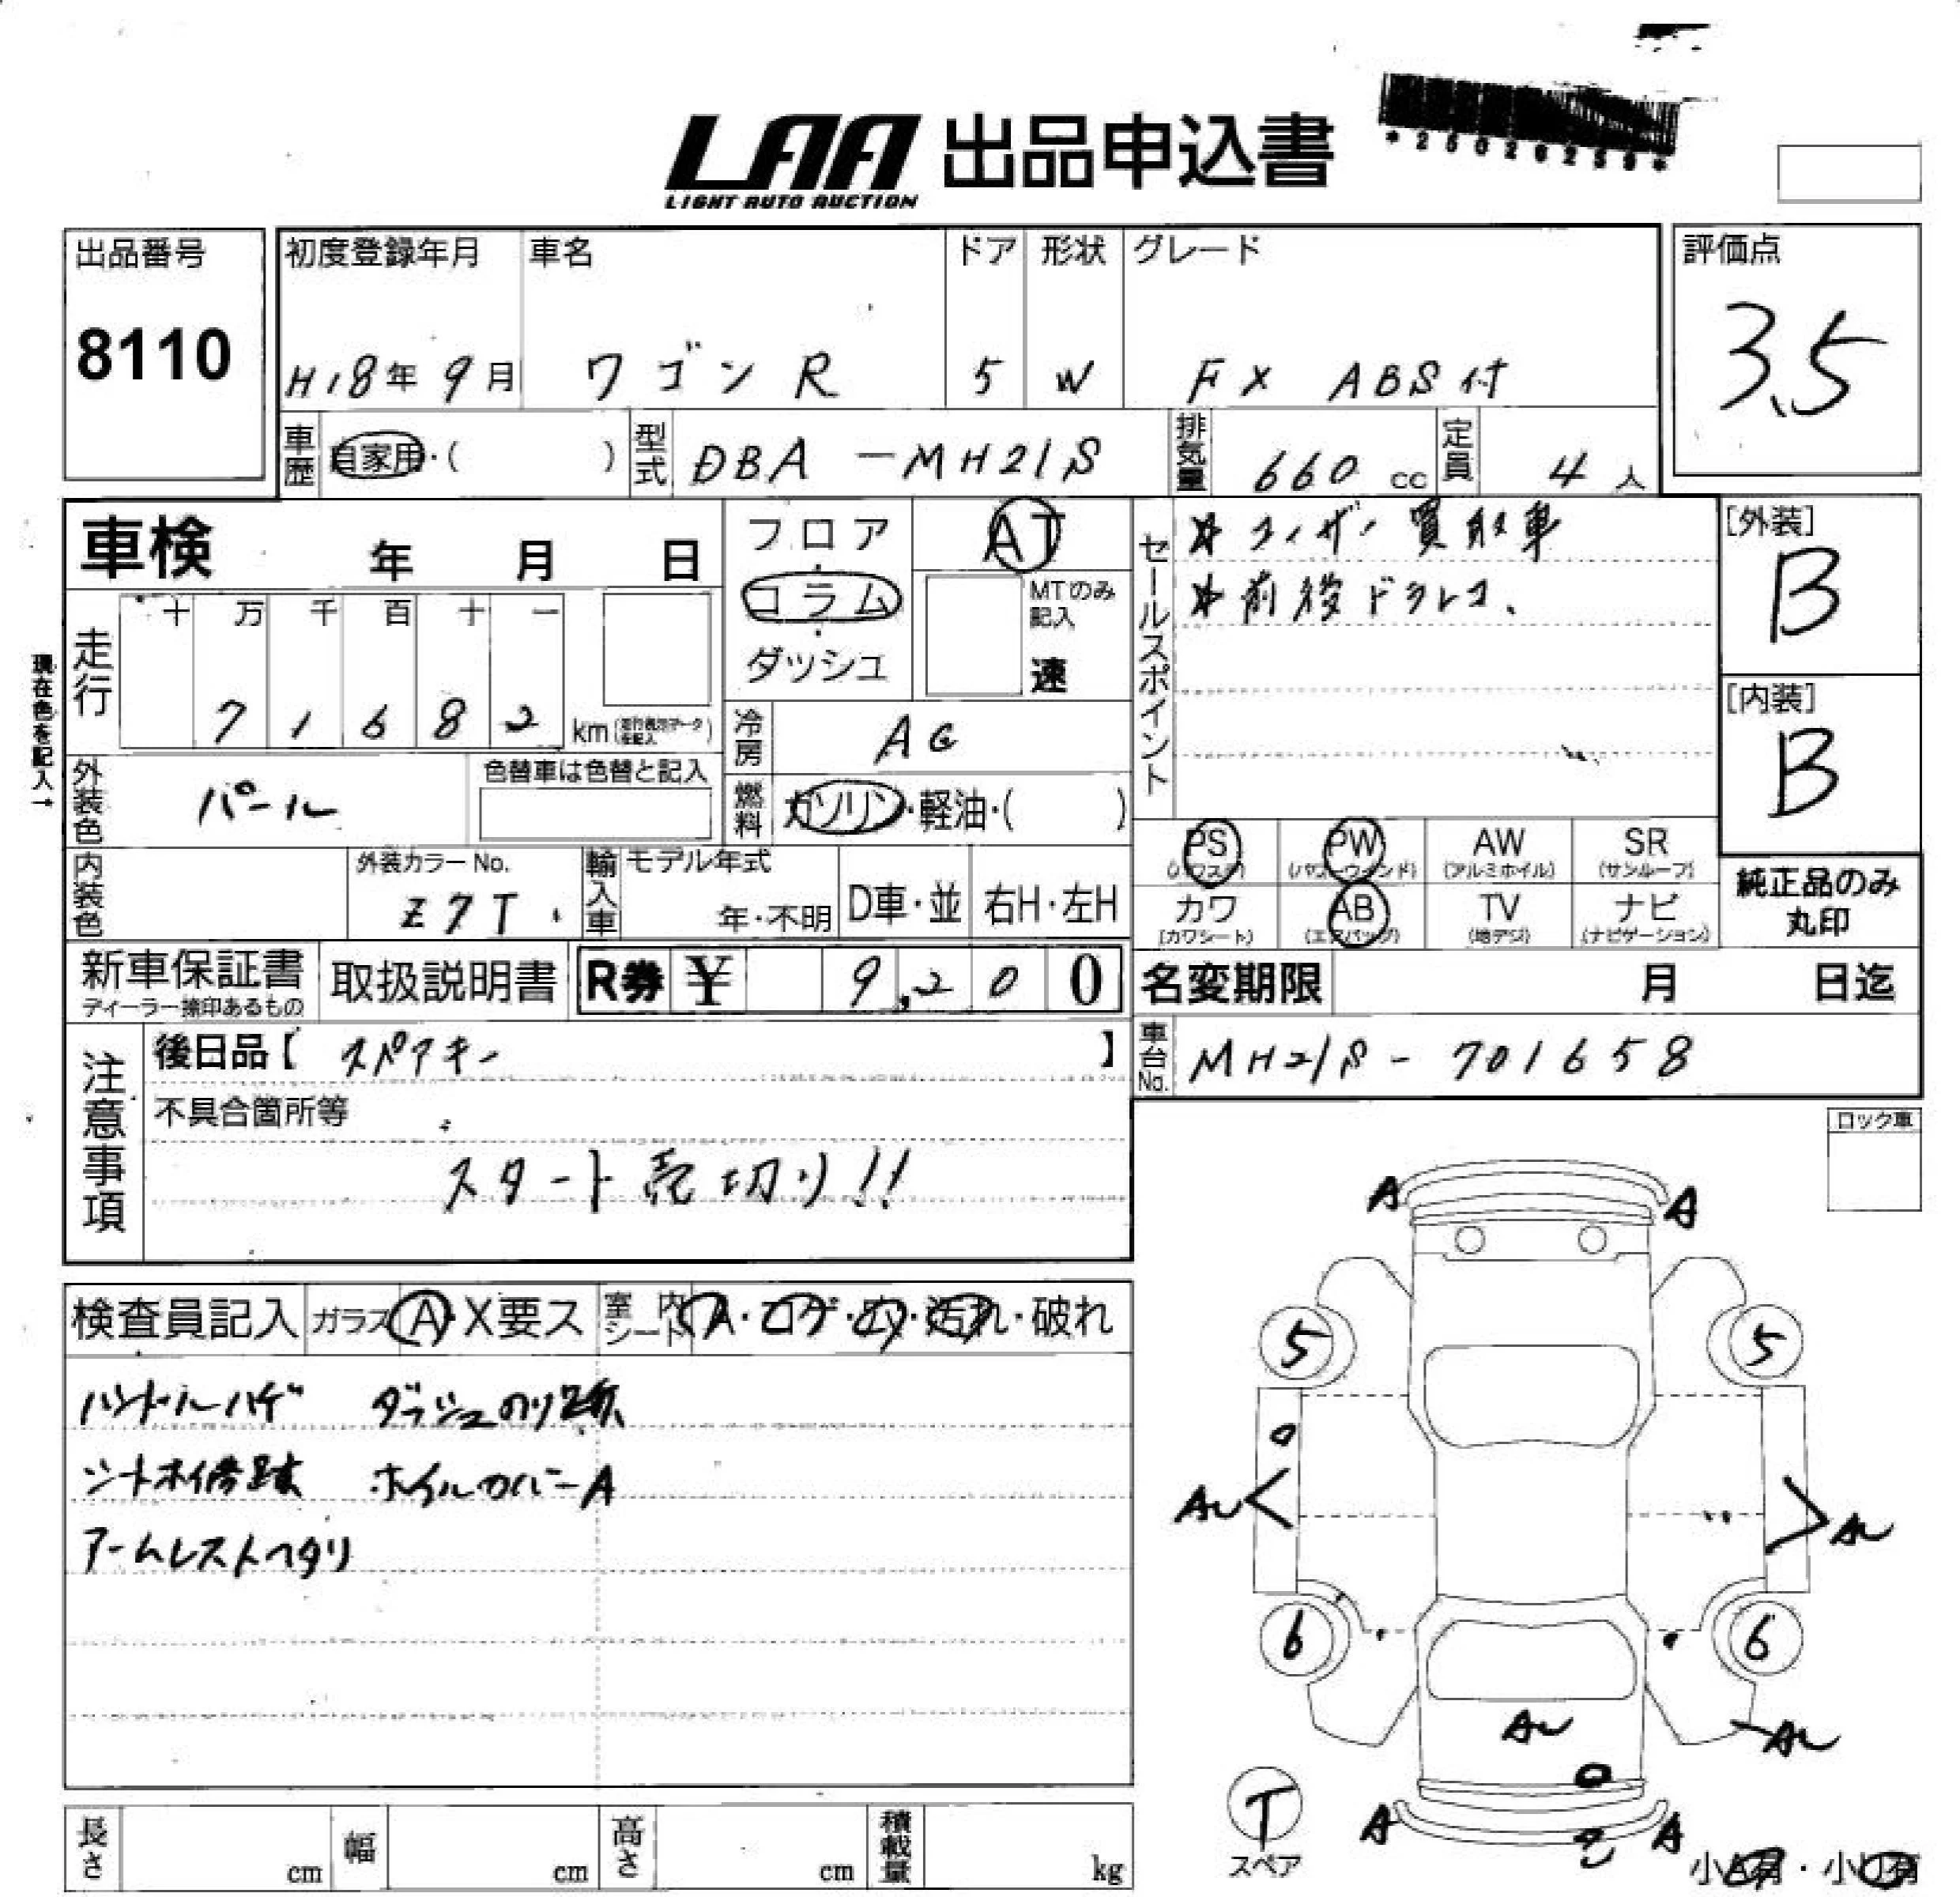 LAA 出品申込書
LIGHT AUTO AUCTION
*25026259*
出品番号
8110
初度登録年月
H18年9月
車名
ワゴンR
ドア
5
形状
W
グレード
FX ABS付
評価点
3.5
車歴
自家用・( )
型式
DBA-MH21S
排気量
660 cc
定員
4人
車検 年 月 日
フロア
コラム
ダッシュ
AT
MTのみ記入
速
セールスポイント
☆ユーザー買取車
☆前後ドラレコ、
[外装]
B
[内装]
B
現在色を記入→
走行
十 万 千 百 十 一
7 1 6 8 2
km
冷房
AC
外装色
パール
色替車は色替と記入
燃料
ガソリン・軽油・( )
PS
(パワステ)
PW
(パワーウインド)
AW
(アルミホイル)
SR
(サンルーフ)
カワ
(カワシート)
AB
(エアバッグ)
TV
(地デジ)
ナビ
(ナビゲーション)
純正品のみ
丸印
内装色
外装カラーNo.
Z7T
輸入車
モデル年式
年・不明
D車・並
右H・左H
新車保証書
ディーラー捺印あるもの
取扱説明書
R券 ¥ 9,200
名変期限 月 日迄
注意事項
後日品【 スペアキー 】
車台No.
MH21S-701658
不具合箇所等
スタート売切り!!
ロック車
検査員記入
ガラス A・X要ス
室内シート A・コゲ・穴・汚れ・破れ
ハンドルハゲ ダッシュのり跡
シート補修跡 ホイルカバーA
アームレストヘタリ
A A
5 5
AU AU
6 6
AU
AU
A A
T
スペア
小A有・小U有
長さ cm
幅 cm
高さ cm
積載量 kg